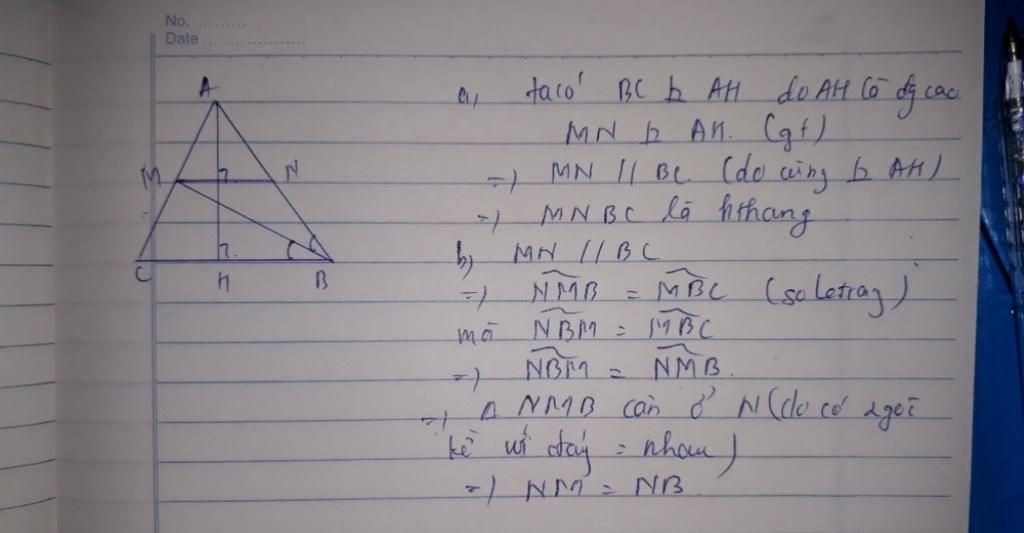 No. .........
Date ...................
A
M
N
C
H
B
a, ta có BC ⊥ AH do AH là đg cao
MN ⊥ AH. (gt)
=) MN // BC. (do cùng ⊥ AH)
=) MNBC là hthang
b, MN // BC
=) NMB = MBC (so le trog)
mà NBM = MBC
=) NBM = NMB.
=) Δ NMB cân ở N (do có 2 goć
kề vs đáy = nhau)
=) NM = NB.